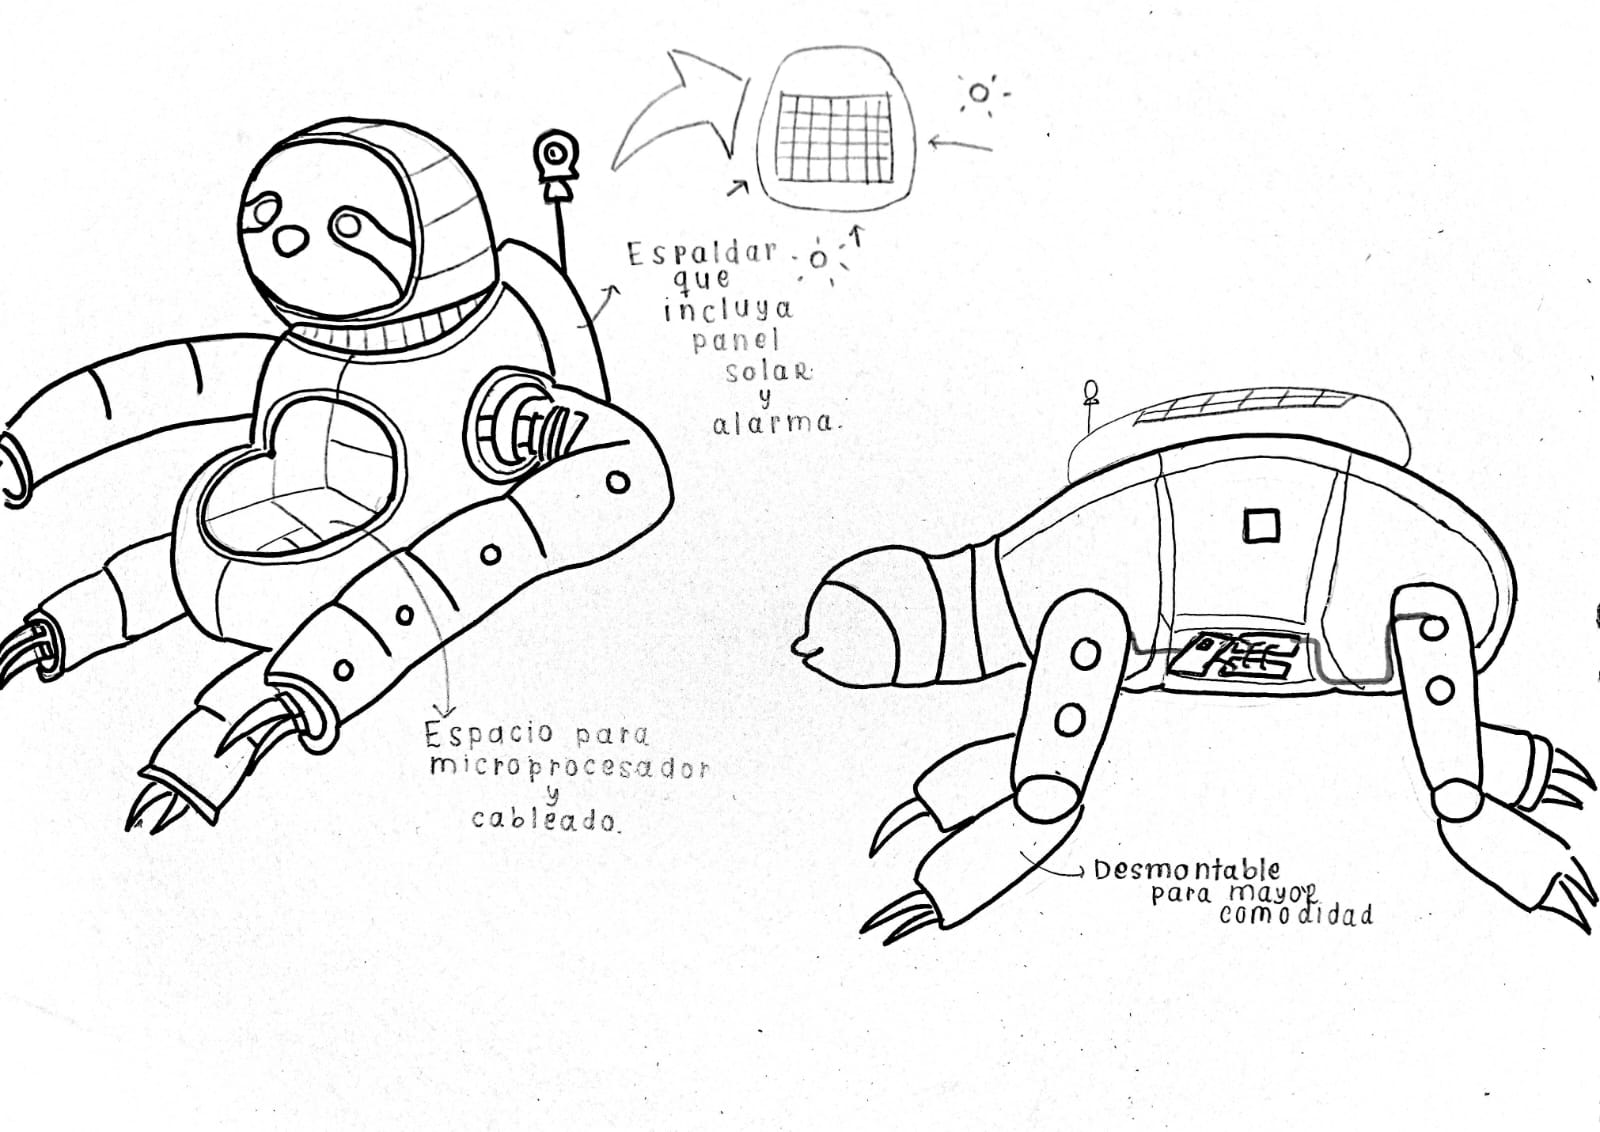 Espaldar
que
incluya
panel
solar
y
alarma.
Espacio para
microprocesador
y
cableado.
Desmontable
para mayor
comodidad